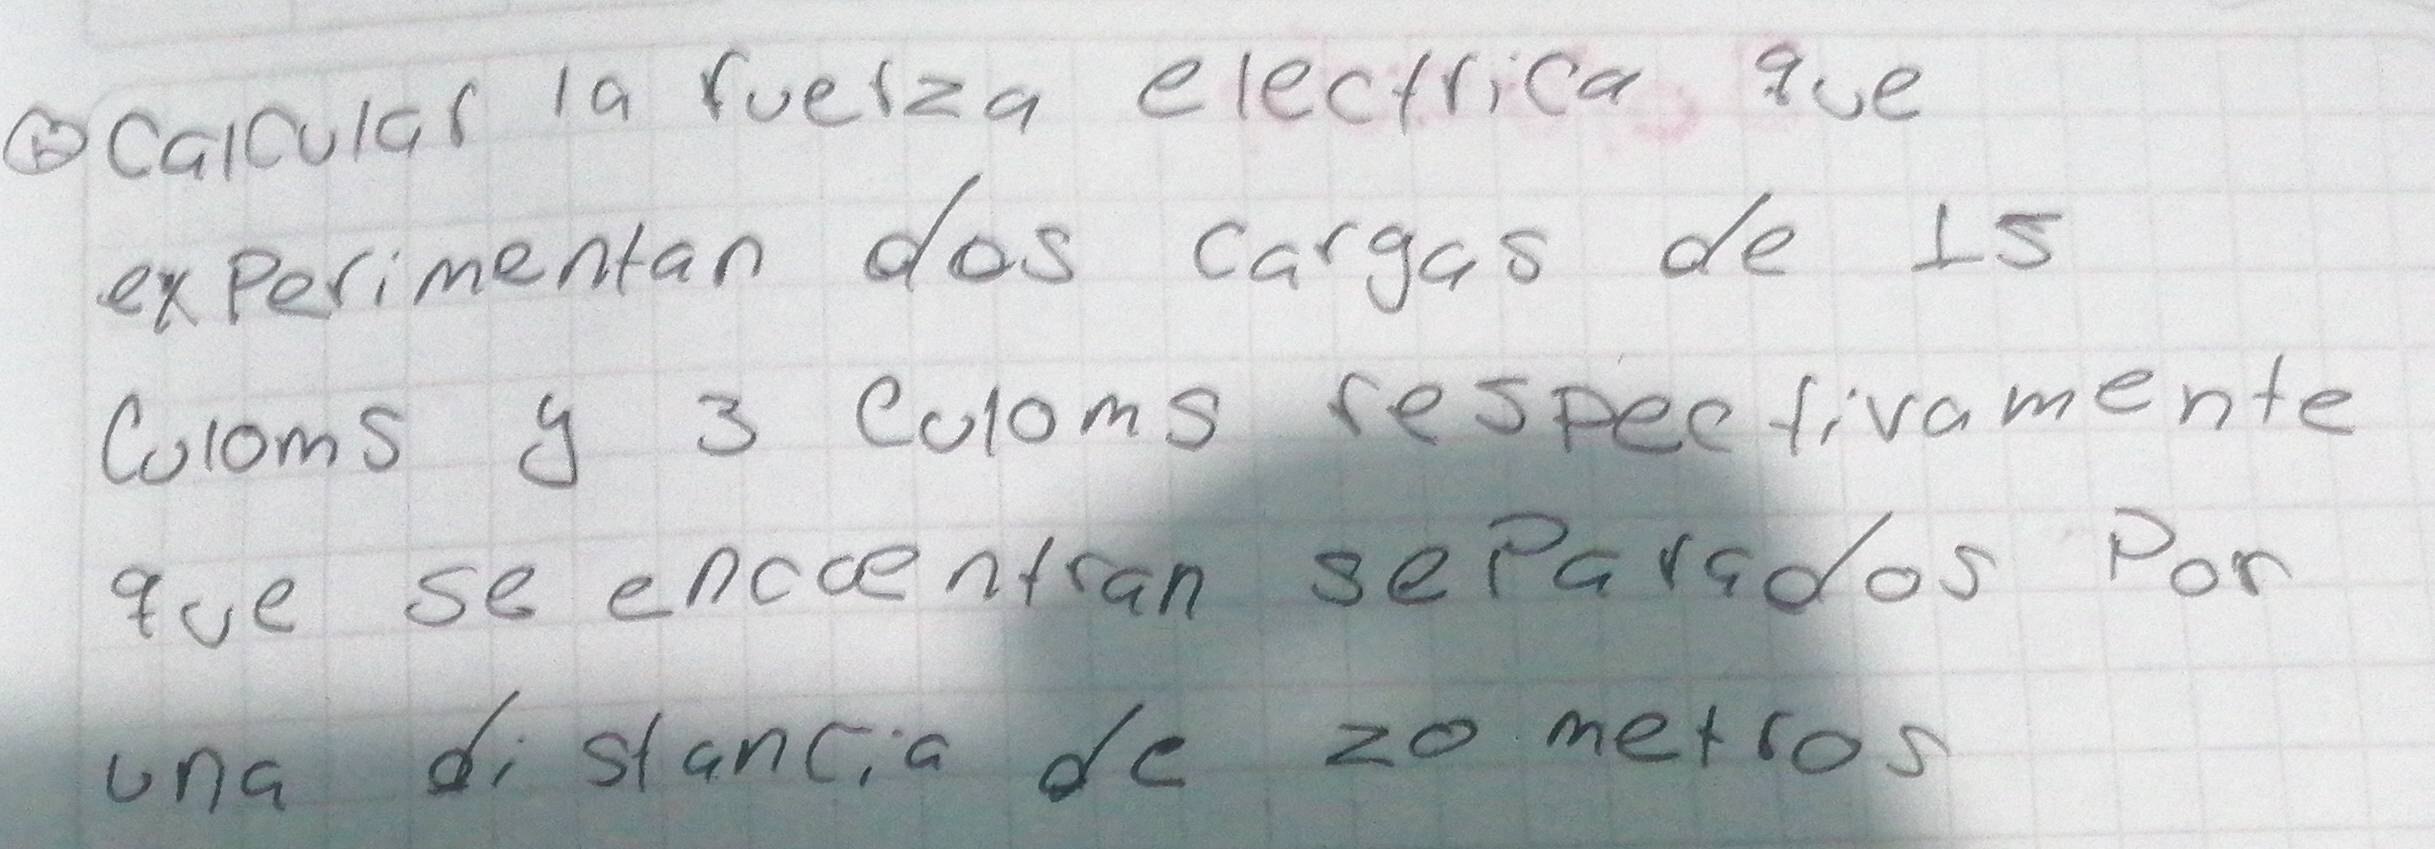 Calcular la fuerza electrica que
experimentan dos cargas de 15
Culoms y 3 Culoms respectivamente
que se encuentran separados por
una distancia de 20 metros